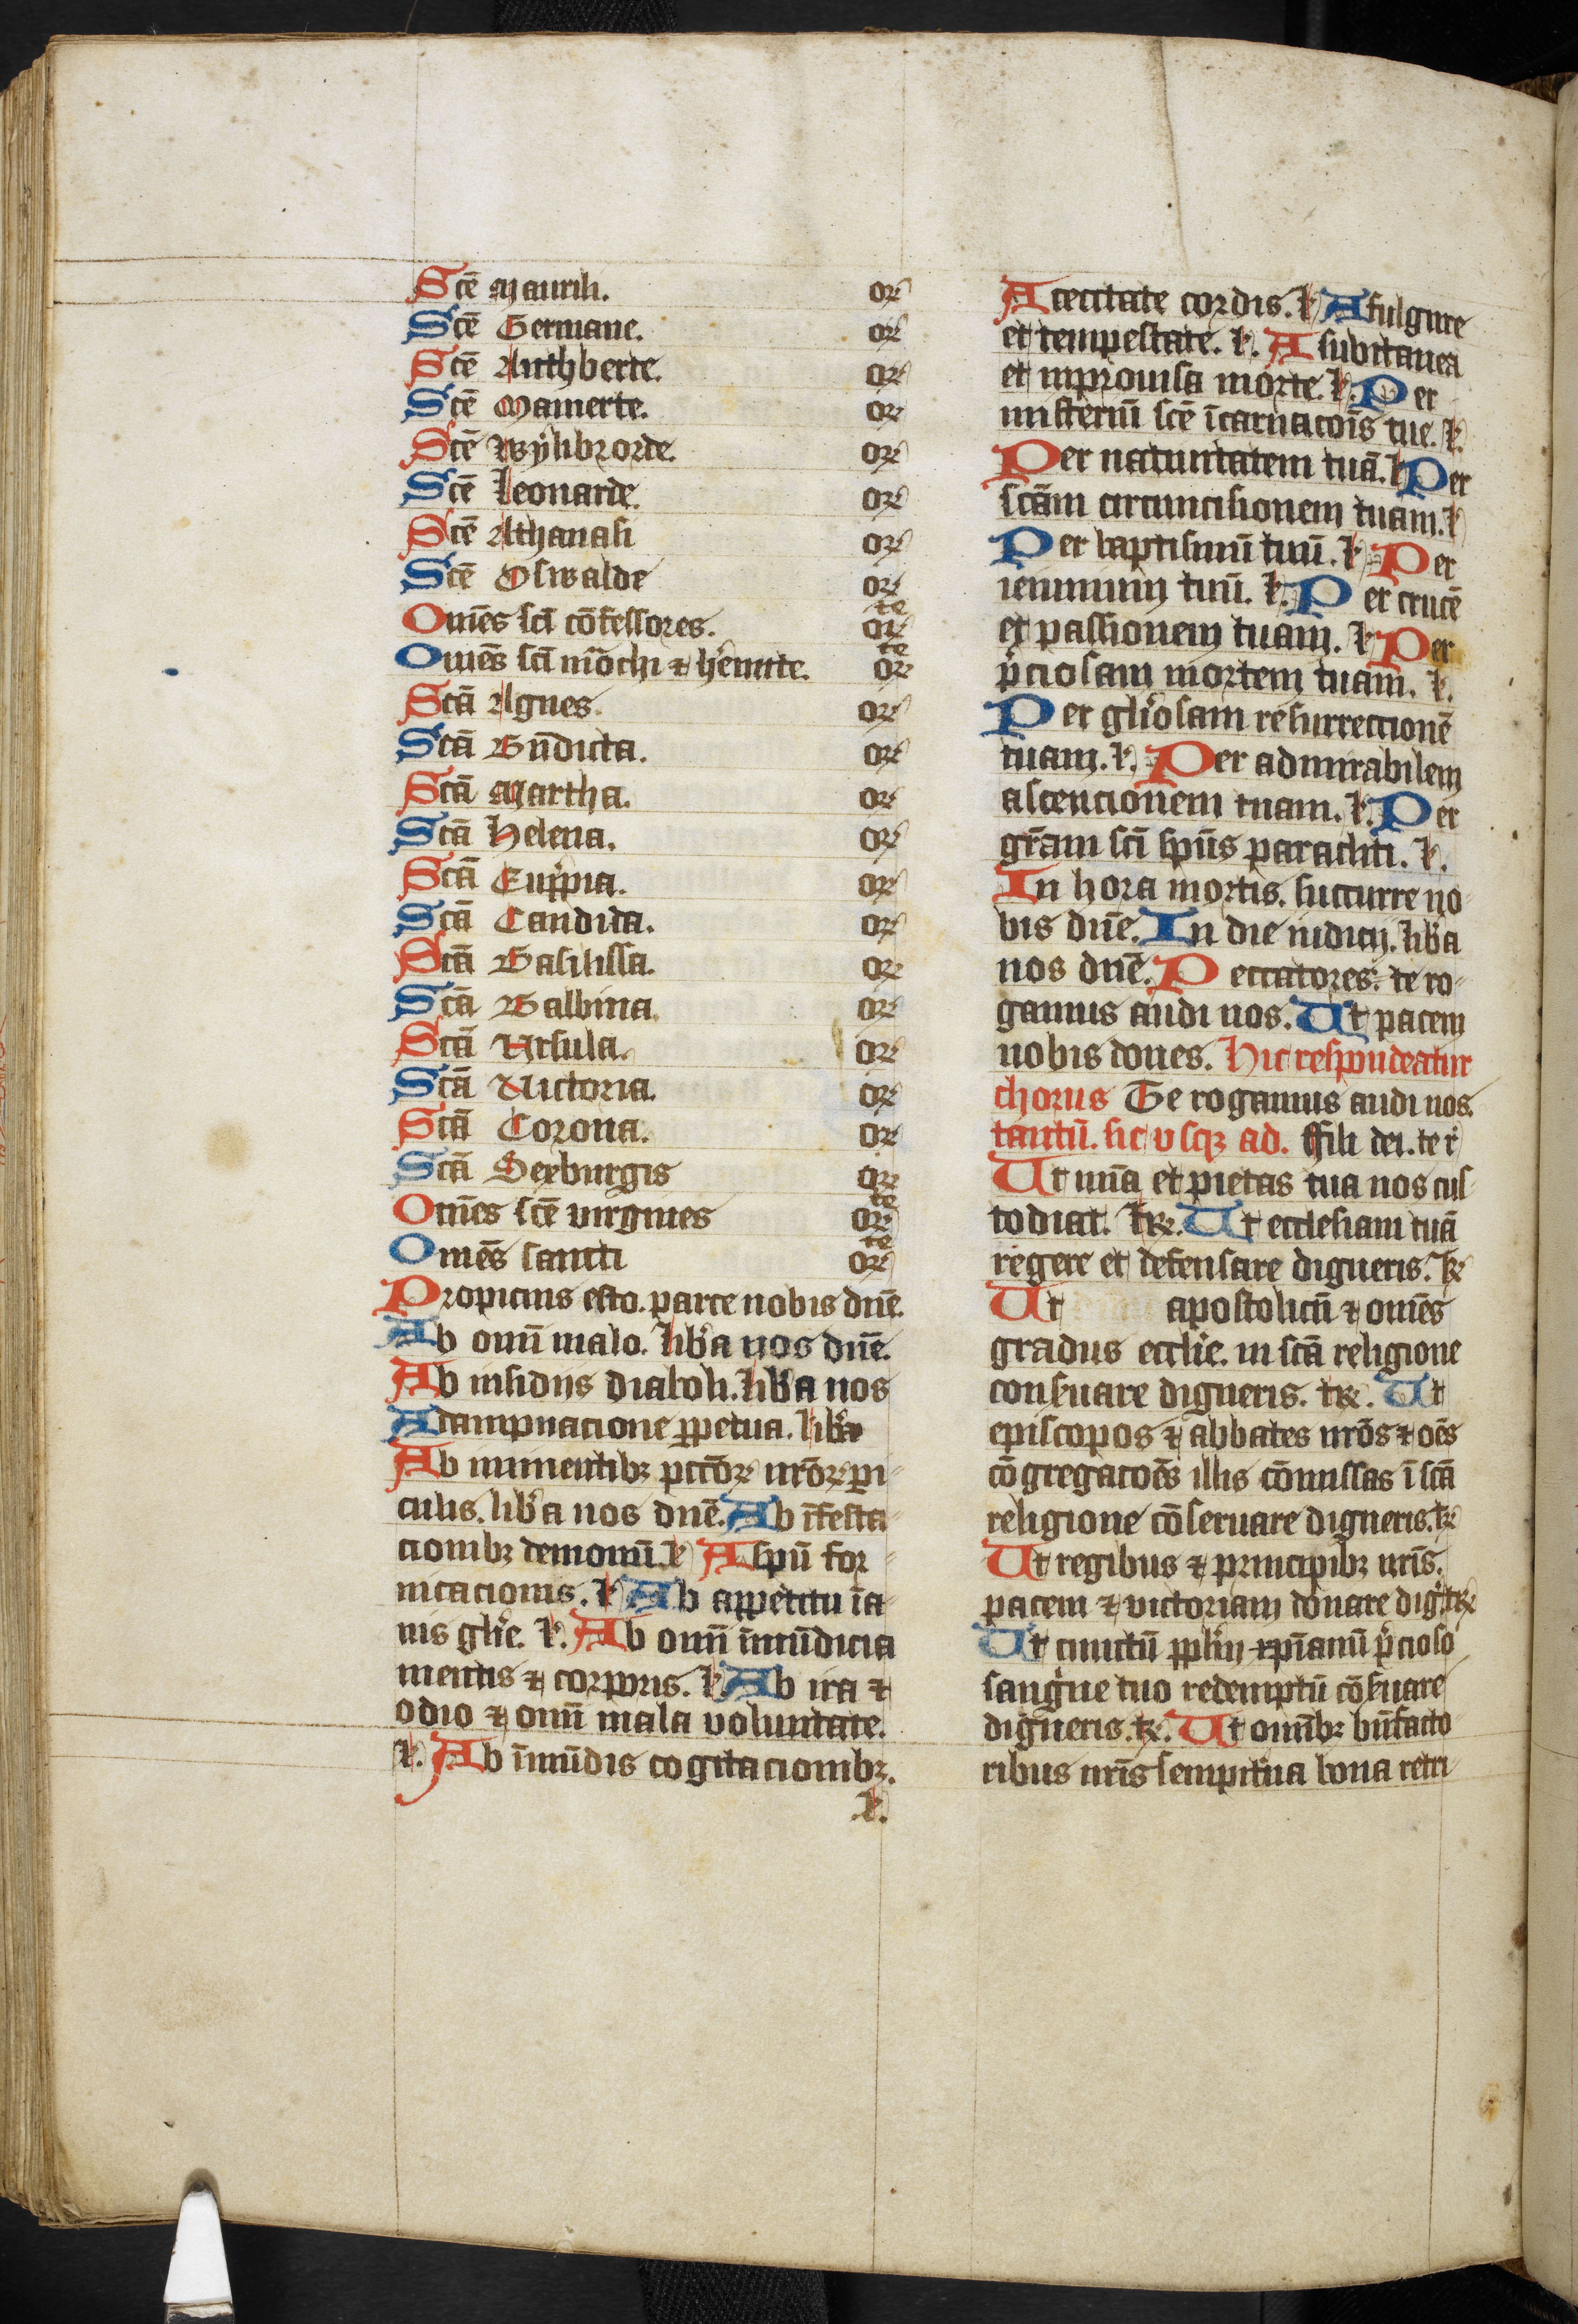 Scē Maurili. orͤ
Scē Germane. orͤ
Scē Cuthberte. orͤ
Scē Mamerte. orͤ
Scē Wylibrorde. orͤ
Scē Leonarde. orͤ
Scē Athanasi orͤ
Scē Oswalde orͤ
Om̄es sci cōfessores. orͤte
Om̄es sci mōchi ⁊ hēmite. orͤte
Scā Agnes. orͤ
Scā Bn̄dicta. orͤ
Scā Martha. orͤ
Scā Helena. orͤ
Scā orͤ
Scā Candida. orͤ
Scā Basilissa. orͤ
Scā Balbina. orͤ
Scā Ursula. orͤ
Scā Victoria. orͤ
Scā Corona. orͤ
Scā Sexburgis orͤ
Om̄es scē virgines orͤte
Om̄es sancti orͤte
Propicius esto. parce nobis dn̄e.
Ab omī malo. lib̄a nos dn̄e.
Ab insidijs diaboli. lib̄a nos
A dampnacione ꝑpetua. lib̄a
Ab iminentibꝫ pcc̄oꝝ nr̄oꝝ ꝑi-
culis. lib̄a nos dn̄e. Ab īfesta-
cionibꝫ demonū. l A spū for-
nicacionis. l Ab appetitu īa-
nis gl̄ie. l. Ab omī īmūdicia
mentis ⁊ corporis. l. Ab ira ⁊
odio ⁊ omī mala voluntate.
l. Ab īmūdis cogitacionibꝫ.
l.
A cecitate cordis. l A fulgure
et tempestate. l. A subitanea
et inprouisa morte. l. Per
misteriū scē īcarnacōis tue. l.
Per natiuitatem tuā. l Per
scām circumcisionem tuam. l
Per baptismū tuū. l Per
ieiunium tuū. l. Per crucē
et passionem tuam. l Per
p̄ciosam mortem tuam. l.
Per gl̄iosam resurrectionē
tuam. l. Per admirabilem
ascencionem tuam. l. Per
gr̄am sci sp̄us paracliti. l.
In hora mortis. succurre no-
bis dn̄e. In die iudicij. lib̄a
nos dn̄e. Peccatores. te ro-
gamus audi nos. Ut pacem
nobis dones. Hic respondeatur
chorus Te rogamus audi nos.
tantū. sic vsqꝫ ad. ffili dei. te r̄
Ut mīa et pietas tua nos cus-
todiat. tꝝ. Ut ecclesiam tuā
regere et defensare digneris. tꝝ
Ut apostolicū ⁊ om̄es
gradus eccl̄ie. in scā religione
conẜuare digneris. tꝝ. Ut
episcopos ⁊ abbates nr̄os ⁊ oēs
cōgregacōes illis cōmissas ī scā
religione cōseruare digneris. tꝝ
Ut regibus ⁊ principibꝫ nr̄is.
pacem ⁊ victoriam donare diḡ. tꝝ
Ut cunctū ppl̄m xp̄ianū p̄cioso
sangͥne tuo redemptū cōẜuare
digneris. tꝝ. Ut omībꝫ bn̄facto-
ribus nr̄is sempit̄na bona retri-